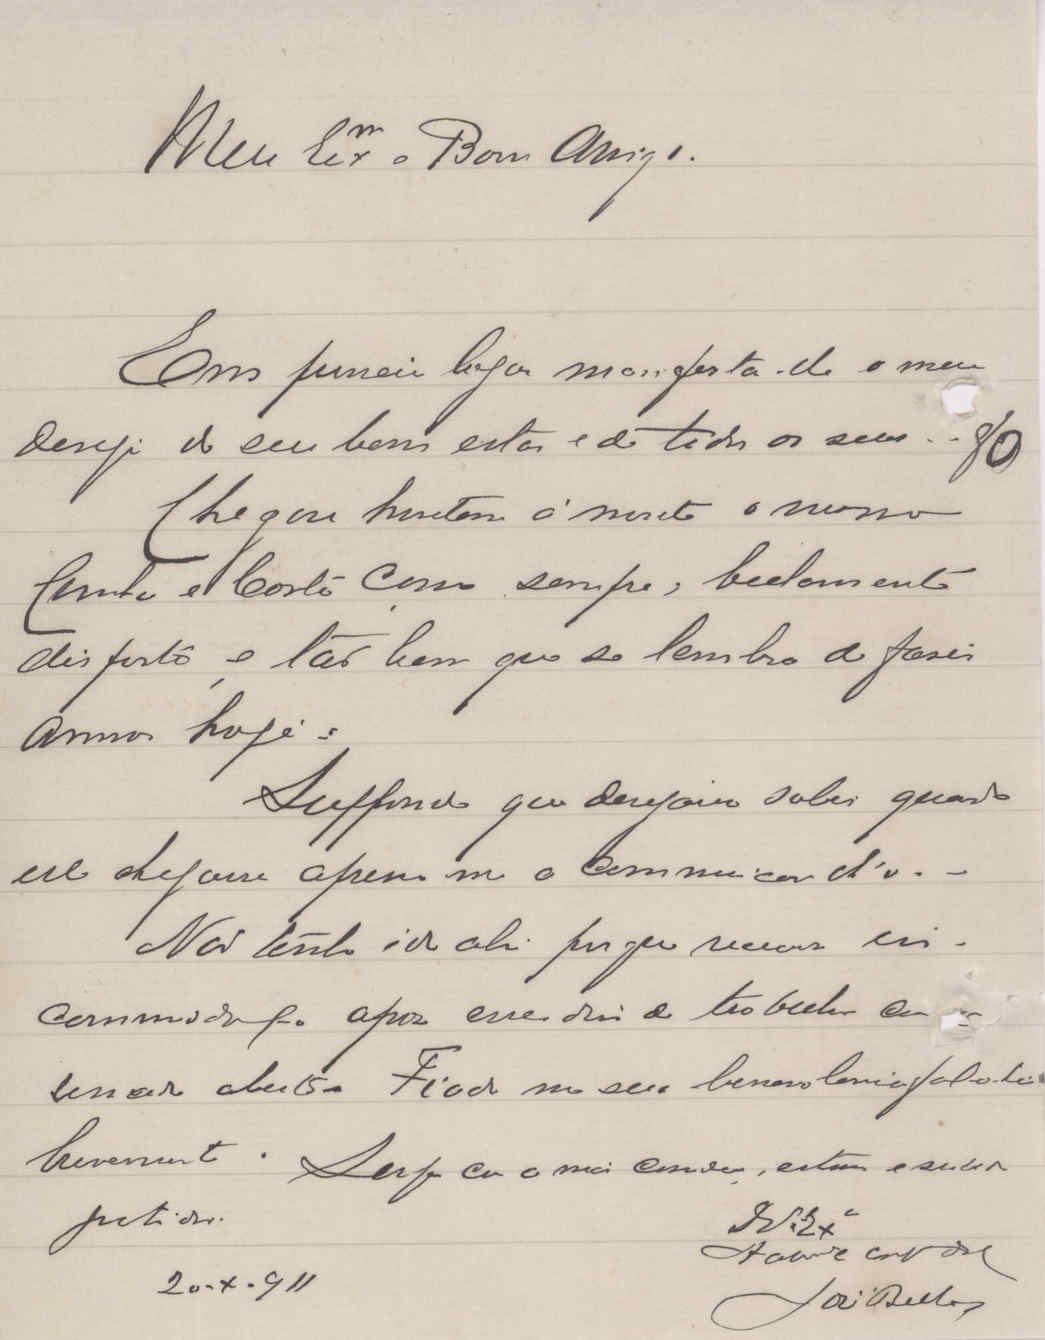 Meu Exmo Bom Amigo.
Em primeiro lugar manifesto-lhe o meu
desejo do seu bem estar e de todos os seus ..
Chegou hontem á noute o nosso
Cunha e Costa como sempre, bellamente
disposto e tão bem que se lembra de fazer
annos hoje.
Suppondo que desejaria saber quando
elle chegasse apresso-me a communicar-lh'o. -
Não tenho ido ahi porque receio in-
commodal-o após esse dia de trabalho
senado aberto. Fiado na sua benevolencia
brevemente. Sou com a maior consideração, estima e
gratidão.
De V. Exa
20-X-911
José Bello